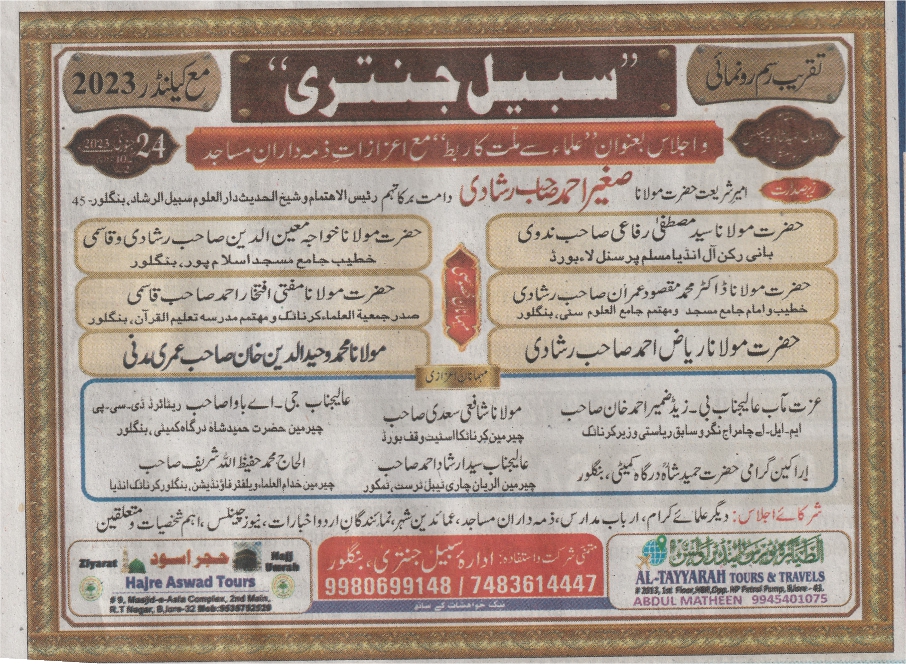 تقریب رسم رونمائی
”سبیل جنتری“
مع کیلنڈر 2023
24 جنوری 2023
و اجلاس بعنوان ”علماء سے ملّت کا ربط“ مع اعزازاتِ ذمہ داران مساجد
زیر صدارت
امیر شریعت حضرت مولانا صغیر احمد صاحب رشادی دامت برکاتہم رئیس الاھتمام و شیخ الحدیث دار العلوم سبیل الرشاد، بنگلور-45
حضرت مولانا سید مصطفیٰ رفاعی صاحب ندوی
بانی رکن آل انڈیا مسلم پرسنل لاء بورڈ
حضرت مولانا خواجہ معین الدین صاحب رشادی و قاسمی
خطیب جامع مسجد اسلام پور، بنگلور
حضرت مولانا ڈاکٹر محمد مقصود عمران صاحب رشادی
خطیب و امام جامع مسجد و مھتمم جامع العلوم سٹی، بنگلور
حضرت مولانا مفتی افتخار احمد صاحب قاسمی
صدر جمعیة العلماء کرناٹک و مھتمم مدرسہ تعلیم القرآن، بنگلور
حضرت مولانا ریاض احمد صاحب رشادی
مولانا محمد وحید الدین خان صاحب عمری مدنی
مہمانان خصوصی
مہمانان اعزازی
عزت مآب عالیجناب بی۔ زیڈ ضمیر احمد خان صاحب
ایم۔ایل۔اے چامراج نگر و سابق ریاستی وزیر کرناٹک
مولانا شافعی سعدی صاحب
چیرمین کرناٹکا اسٹیٹ وقف بورڈ
عالیجناب جی۔ اے باوا صاحب ریٹائرڈ ڈی۔سی۔پی
چیرمین حضرت حمید شاہ درگاہ کمیٹی، بنگلور
اراکین گرامی حضرت حمید شاہؒ درگاہ کمیٹی، بنگلور
عالیجناب سید ارشاد احمد صاحب
چیرمین الریان چاری ٹیبل ٹرسٹ، ٹمکور
الحاج محمد حفیظ اللہ شریف صاحب
چیرمین خدام العلماء ویلفئر فاؤنڈیشن، بنگلور کرناٹک انڈیا
شرکائے اجلاس: دیگر علمائے کرام، ارباب مدارس، ذمہ داران مساجد، عمائدین شہر، نمائندگانِ اردو اخبارات، نیوز چینلس، اہم شخصیات و متعلقین
AL-TAYYARAH TOURS & TRAVELS
# 2013, 1st Floor, HBR, Opp. HP Petrol Pump, B,lore - 43.
ABDUL MATHEEN 9945401075
متمنی شرکت و استفادہ: ادارہ سبیل جنتری، بنگلور
9980699148 / 7483614447
نیک خواھشات کے ساتھ
Ziyarat حجر اسود Hajj Umrah
Hajre Aswad Tours
# 9, Masjid-e-Asla Complex, 2nd Main,
R.T Nagar, B,lore-32 Mob:9535752529